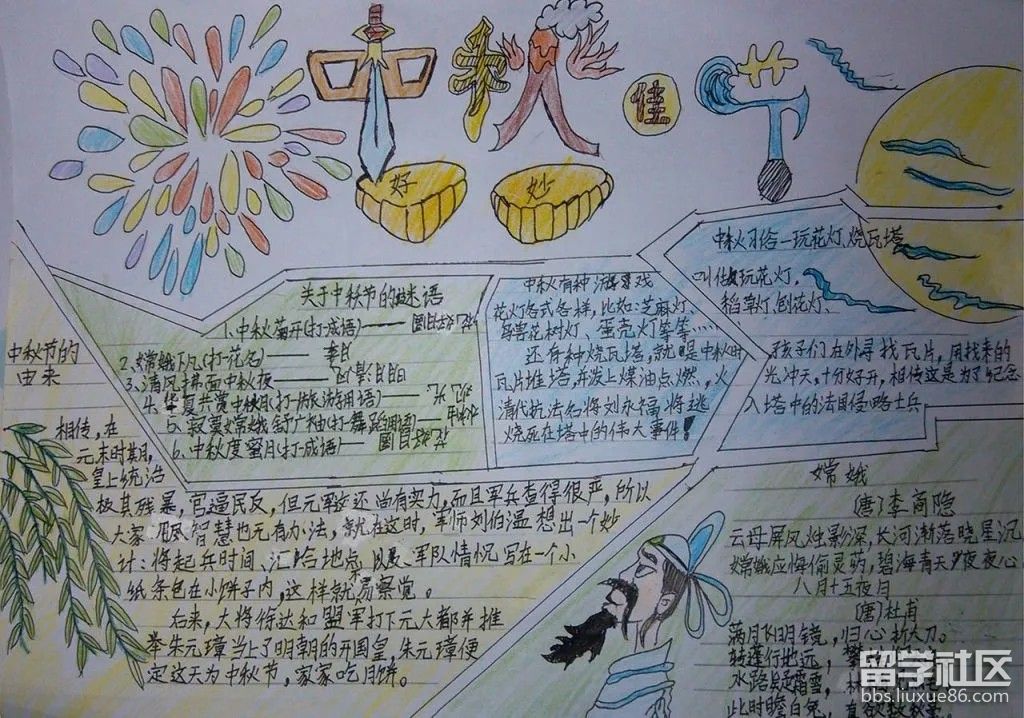 中秋佳节
好
妙
中秋节的
由来
相传，在
元末时期，
皇上统治
极其残暴，官逼民反，但元军还尚有实力，而且军兵查得很严，所以
大家用尽智慧也无办法，就在这时，军师刘伯温想出一个妙
计：将起兵时间、汇合地点以及军队情况写在一个小
纸条包在小饼子内，这样就易察觉。
后来，大将徐达和盟军打下元大都并推
举朱元璋当上了明朝的开国皇，朱元璋便
定这天为中秋节，家家吃月饼。
关于中秋节的谜语
1、中秋菊开(打一成语)——花好月圆
2、嫦娥下凡(打一花名)——
3、清风拂面中秋夜——
4、华夏共赏中秋月(打一旅游用语)——
5、寂寞嫦娥舒广袖(打一舞蹈用语)
6、中秋度蜜月(打一成语)——花好月圆
中秋有种游戏
花灯各式各样，比如：芝麻灯、
鸟兽花树灯、蛋壳灯等等……
还有种烧瓦塔，就是中秋时
瓦片堆塔，并泼上煤油点燃，火
清代抗法名将刘永福将逃
烧死在塔中的伟大事件！
中秋习俗一玩花灯、烧瓦塔
叫做玩花灯.
稻草灯、刨花灯、
孩子们在外寻找瓦片，用找来的
光冲天，十分好开，相传这是为了纪念
入塔中的法国侵略士兵
嫦娥
(唐)李商隐
云母屏风烛影深，长河渐落晓星沉
嫦娥应悔偷灵药，碧海青天夜夜心
八月十五夜月
(唐)杜甫
满月飞明镜，归心折大刀。
转蓬行地远，
水路疑霜雪，
此时瞻白兔，
留学社区
bbs.liuxue86.com